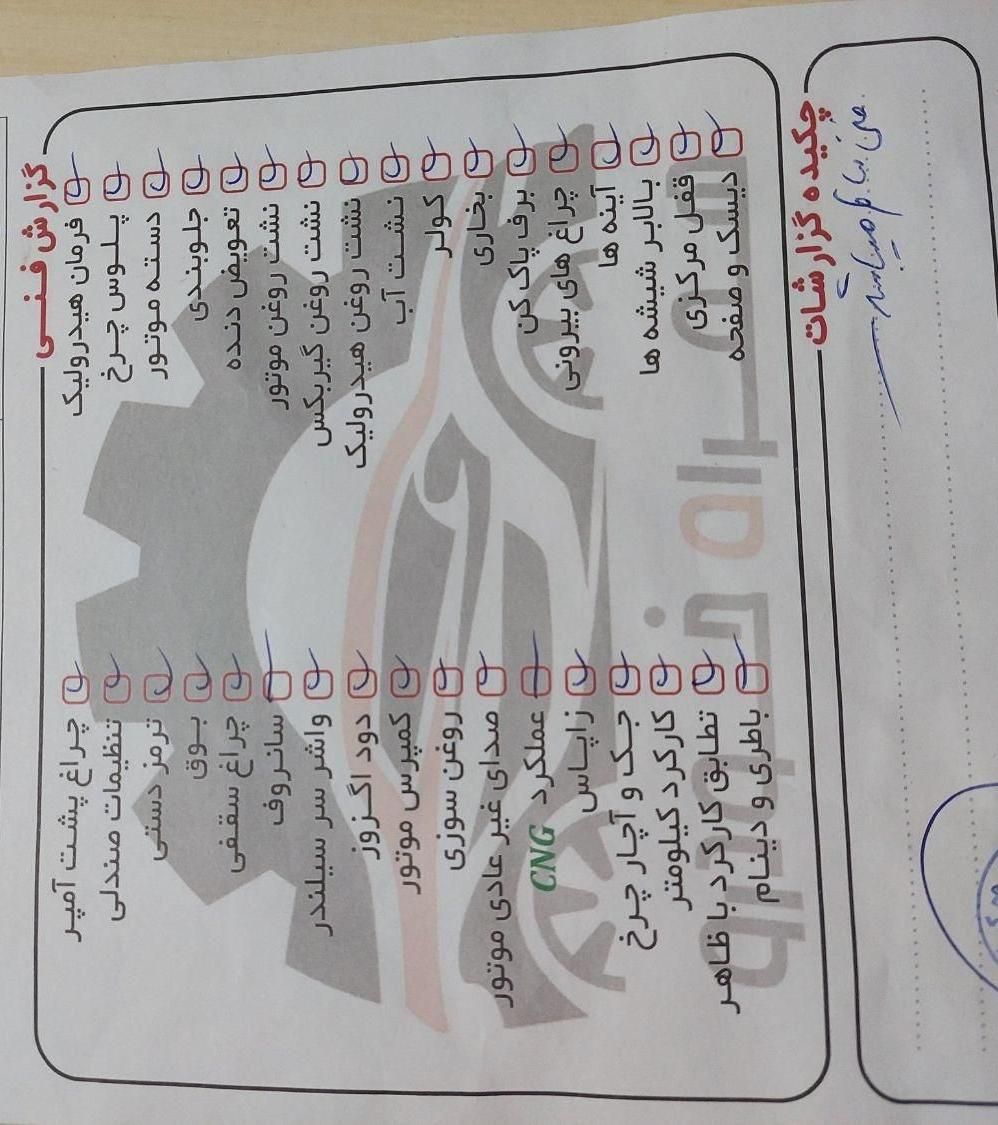 گزارش فنی
فرمان هیدرولیک
پلوس چرخ
دسته موتور
جلوبندی
تعویض دنده
نشت روغن موتور
نشت روغن گیربکس
نشت روغن هیدرولیک
نشت آب
کولر
بخاری
برف پاک کن
چراغ های بیرونی
آینه ها
بالابر شیشه ها
قفل مرکزی
دیسک و صفحه
چراغ پشت آمپر
تنظیمات صندلی
ترمز دستی
بوق
چراغ سقفی
سانروف
واشر سر سیلندر
دود اگزوز
کمپرس موتور
روغن سوزی
صدای غیر عادی موتور
عملکرد CNG
زاپاس
جک و آچار چرخ
کارکرد کیلومتر
تطابق کارکرد با ظاهر
باطری و دینام
چکیده گزارشات